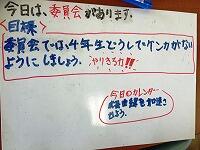 今日は、委員会があります。
〈目標〉
委員会では、4年生どうしでケンカがない
ようにしましょう。 やりきる力!!
今日のカレンダー
を